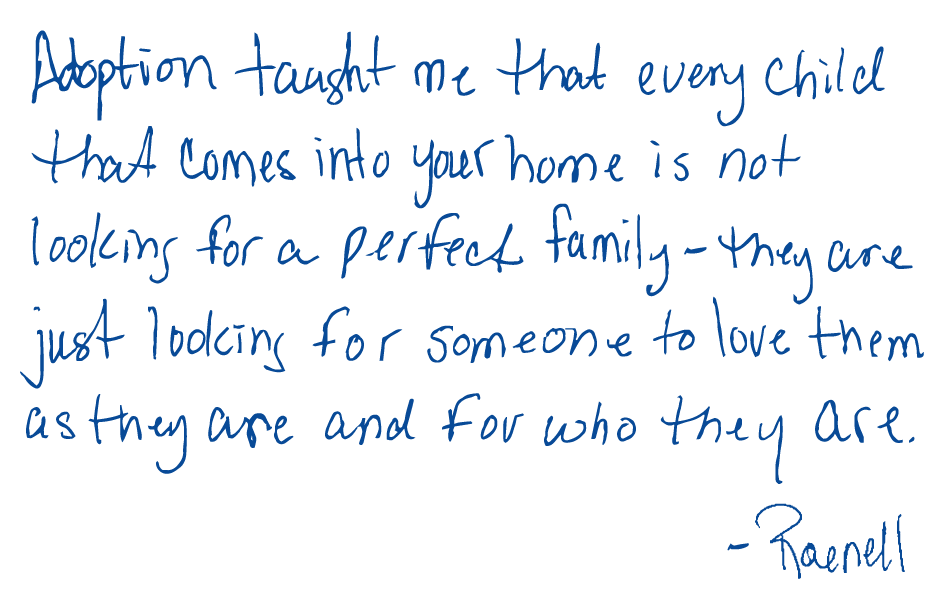 Adoption taught me that every child
that comes into your home is not
looking for a perfect family - they are
just looking for someone to love them
as they are and for who they are.
- Raenell